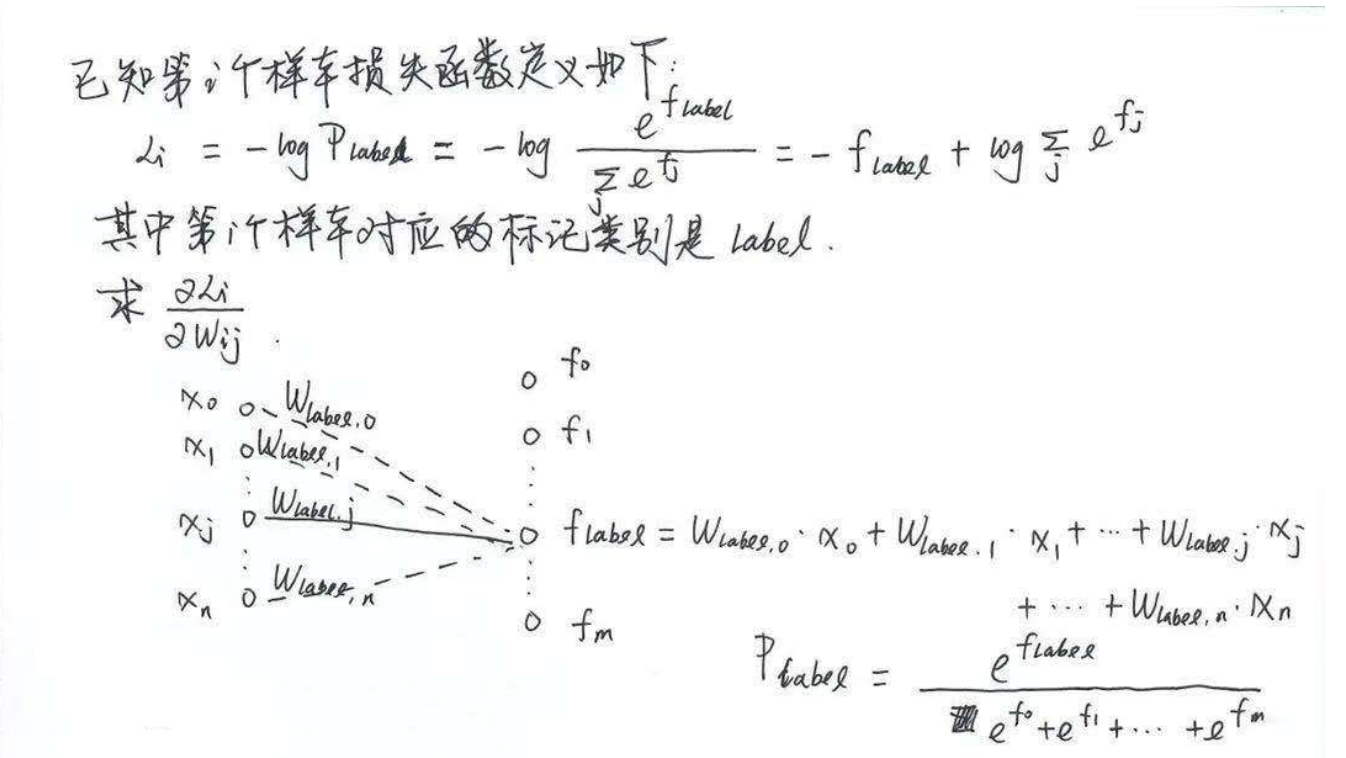 已知第i个样本损失函数定义如下:
Li = -log Plabel = - log e^flabel / Σj e^fj = - flabel + log Σj e^fj
其中第i个样本对应的标记类别是 label.
求 ∂Li/∂Wij .
f0
x0 Wlabel,0
f1
x1 Wlabel,1
xj Wlabel,j flabel = Wlabel,0 · x0 + Wlabel,1 · x1 + ··· + Wlabel,j · xj
xn Wlabel,n + ··· + Wlabel,n · xn
fm
Plabel = e^flabel / e^f0 + e^f1 + ··· + e^fm